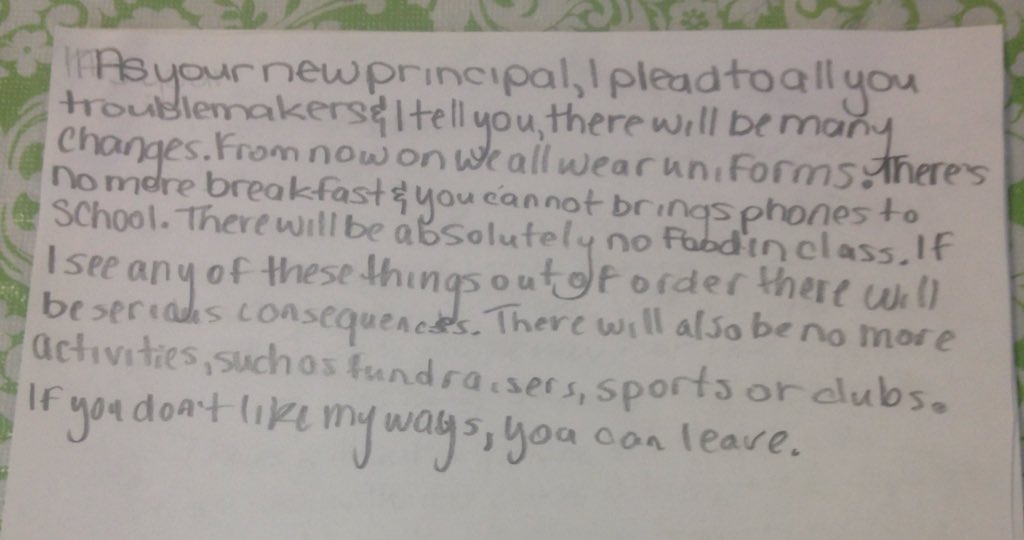 As your new principal, I plead to all you
troublemakers & I tell you, there will be many
changes. From now on we all wear uniforms. There's
no more breakfast & you cannot brings phones to
School. There will be absolutely no food in class. If
I see any of these things out of order there will
be serious consequences. There will also be no more
activities, such as fundraisers, sports or clubs.
If you don't like my ways, you can leave.